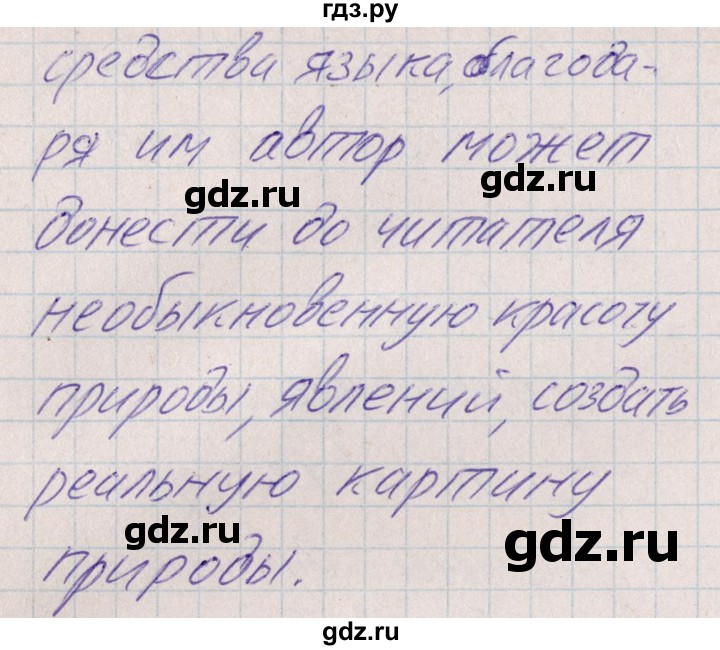 гдз.ру
средства языка, благода-
ря им автор может
gdz.ru
gdz.ru
донести до читателя
необыкновенную красоту
природы, явлений, создать
реальную картину
gdz.ru
gdz.ru
природы.
gdz.ru